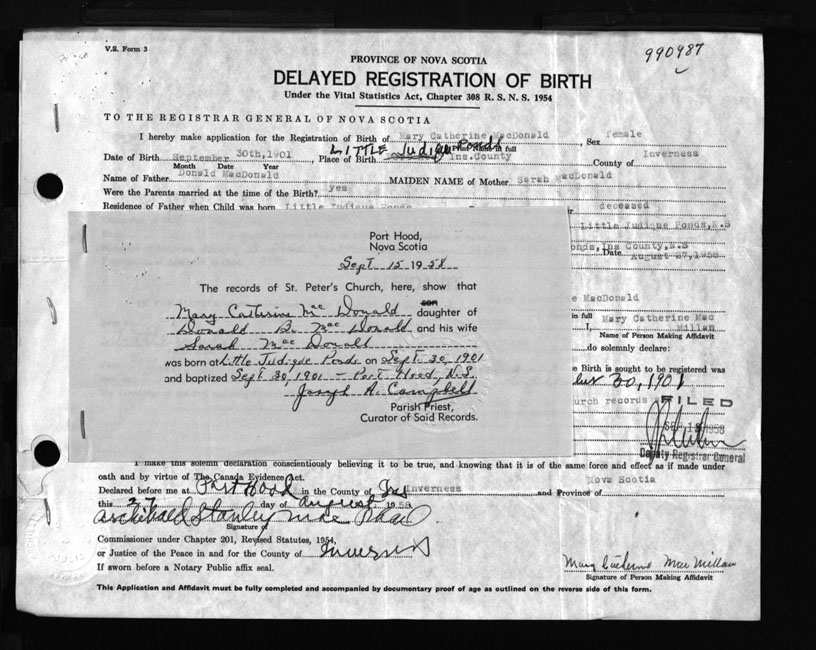 V.S. Form 3
990987
PROVINCE OF NOVA SCOTIA
DELAYED REGISTRATION OF BIRTH
Under the Vital Statistics Act, Chapter 308 R. S. N. S. 1954
TO THE REGISTRAR GENERAL OF NOVA SCOTIA
I hereby make application for the Registration of Birth of Mary Catherine MacDonald, Sex female
Print Name in full
Date of Birth September 30th,1901, Place of Birth LITTLE Judique Ponds Ins.County County of Inverness
Month Date Year
Name of Father Donald MacDonald MAIDEN NAME of Mother Sarah MacDonald
Were the Parents married at the time of the Birth? yes
Residence of Father when Child was born Little Judique Ponds deceased
Little Judique Ponds,N.S
onds,Ins County,N.S
Date August 27,1958
Port Hood,
Nova Scotia
Sept 15 1958
The records of St. Peter's Church, here, show that
Mary Catherine Mac Donald son daughter of
Donald B. Mac Donald and his wife
Sarah Mac Donald
was born at Little Judique Ponds on Sept. 30, 1901
and baptized Sept 30, 1901 – Port Hood, N.S.
Joseph A. Campbell
Parish Priest,
Curator of Said Records.
e MacDonald
in full Mary Catherine Mac
I, Millan
Name of Person Making Affidavit
do solemnly declare:
e Birth is sought to be registered was
30, 1901
urch records
FILED
1958
Deputy Registrar General
I make this solemn declaration conscientiously believing it to be true, and knowing that it is of the same force and effect as if made under
oath and by virtue of The Canada Evidence Act.
Declared before me at Port Hood in the County of Ins Inverness and Province of Nova Scotia
this 27 day of August 1958
Archibald Stanley Mac Phail
Signature of
Commissioner under Chapter 201, Revised Statutes, 1954,
or Justice of the Peace in and for the County of Inverness
If sworn before a Notary Public affix seal.
Mary Catherine Mac Millan
Signature of Person Making Affidavit
This Application and Affidavit must be fully completed and accompanied by documentary proof of age as outlined on the reverse side of this form.